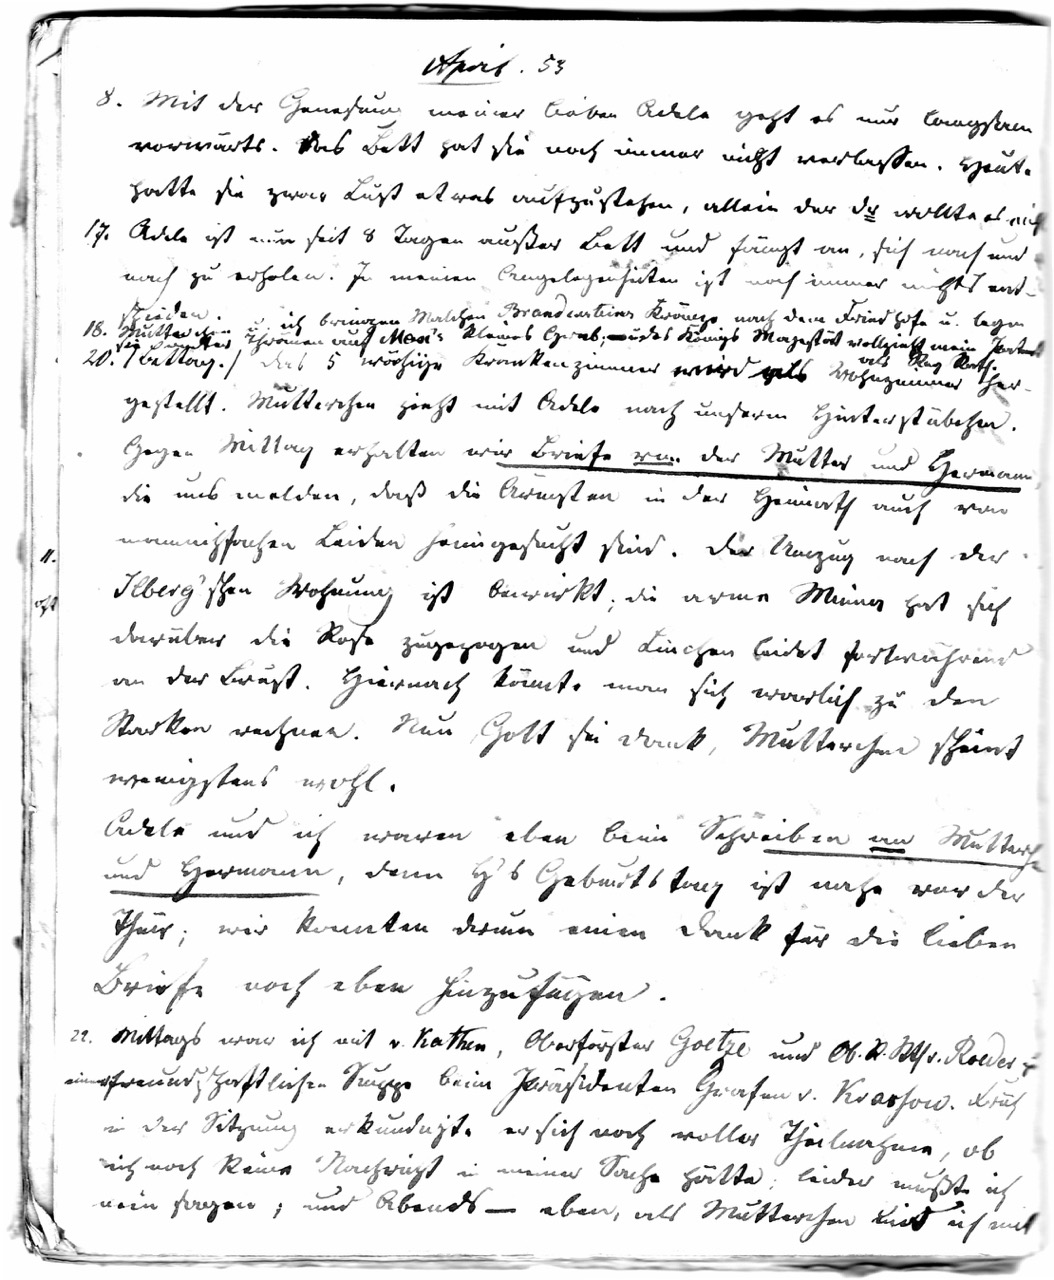 April. 53
8. Mit der Genesung meiner lieben Adele geht es nur langsam
vorwärts. Das Bett hat sie noch immer nicht verlassen. Heute
hatte sie zwar Lust etwas aufzustehen, allein der Dr wollte es nich
17. Adele ist nun seit 8 Tagen außer Bett und fängt an, sich nach und
nach zu erholen. In meinen Angelegenheiten ist noch immer nichts ent-
schieden.
18. Mutterchen u. ich bringen Malchen Brandensteins Kränze nach dem Friedhofe u. legen
sie unter Thränen auf Max's kleines Grab. des Königs Majestät vollzieht mein Patent
als Reg Rath.
20. /:Bettag./ das 5 wöchige Krankenzimmer wird als Wohnzimmer her-
gestellt. Mutterchen zieht mit Adele nach unserem Hinterstübchen.
Gegen Mittag erhalten wir Briefe von der Mutter und Hermann,
die uns melden, daß die Ärmsten in der Heimath auch von
mannichfachen Leiden heimgesucht sind. Der Umzug nach der
11.
Ilberg'schen Wohnung ist bewirkt; die arme Minna hat sich
darüber die Rose zugezogen und Linchen leidet fortwährend
an der Brust. Hiernach könnte man sich warlich zu den
Starken rechnen. Nun, Gott sei dank, Mutterchen scheint
wenigstens wohl.
Adele und ich waren eben beim Schreiben an Mutterch
und Hermann, denn H's Geburtstag ist nahe vor der
Thür; wir konnten drum einen Dank für die lieben
Briefe noch eben hinzufügen.
22. Mittags war ich mit v. Kathen, Oberförster Goetze und Ob. R. Rth v. Roeder z
einer freundschaftlichen Suppe beim Präsidenten Grafen v. Krassow. Früh
in der Sitzung erkundigte er sich noch voller Theilnahme, ob
ich noch keine Nachricht in meiner Sache hätte; leider mußte ich
nein sagen; und Abends — eben, als Mutterchen und ich mit